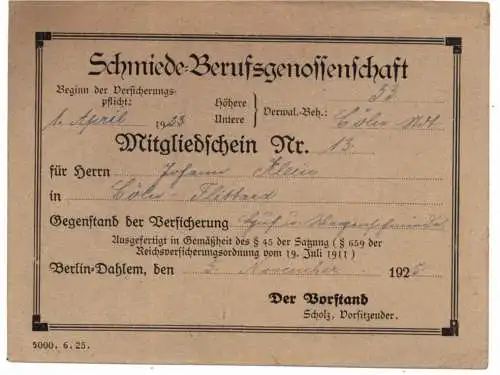 Schmiede-Berufsgenossenschaft
Beginn der Versicherungs-
pflicht:
1. April 1923
Höhere
Untere
Verwal.-Beh.:
53
Cöln
Mitgliedschein Nr. 13
für Herrn Johann Klein
in Cöln-Flittard
Gegenstand der Versicherung Huf u. Wagenschmiede
Ausgefertigt in Gemäßheit des § 45 der Satzung (§ 659 der
Reichsversicherungsordnung vom 19. Juli 1911)
Berlin-Dahlem, den November 192
Der Vorstand
Scholz, Vorsitzender.
5000. 6. 25.